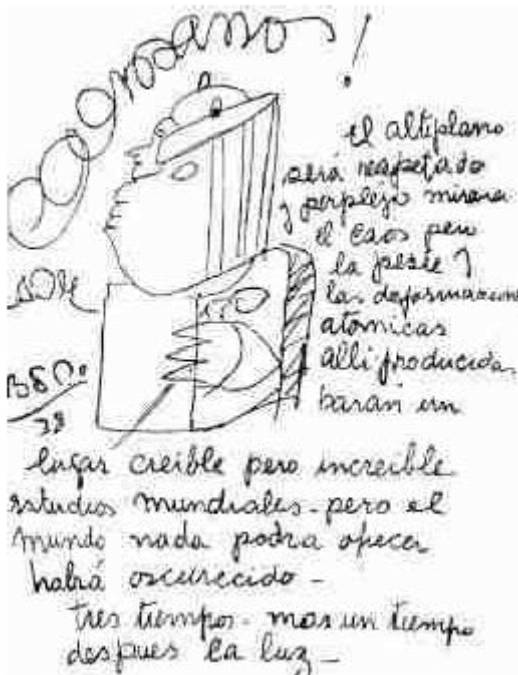 el altiplano
será respetado
y perplejo mirara
el caos pero
la peste y
las deformaciones
atomicas
alli producidas
haran un
lugar creible pero increible
estudios mundiales - pero el
mundo nada podra ofrecer
habrá oscurecido -
tres tiempos - mas un tiempo
despues la luz -